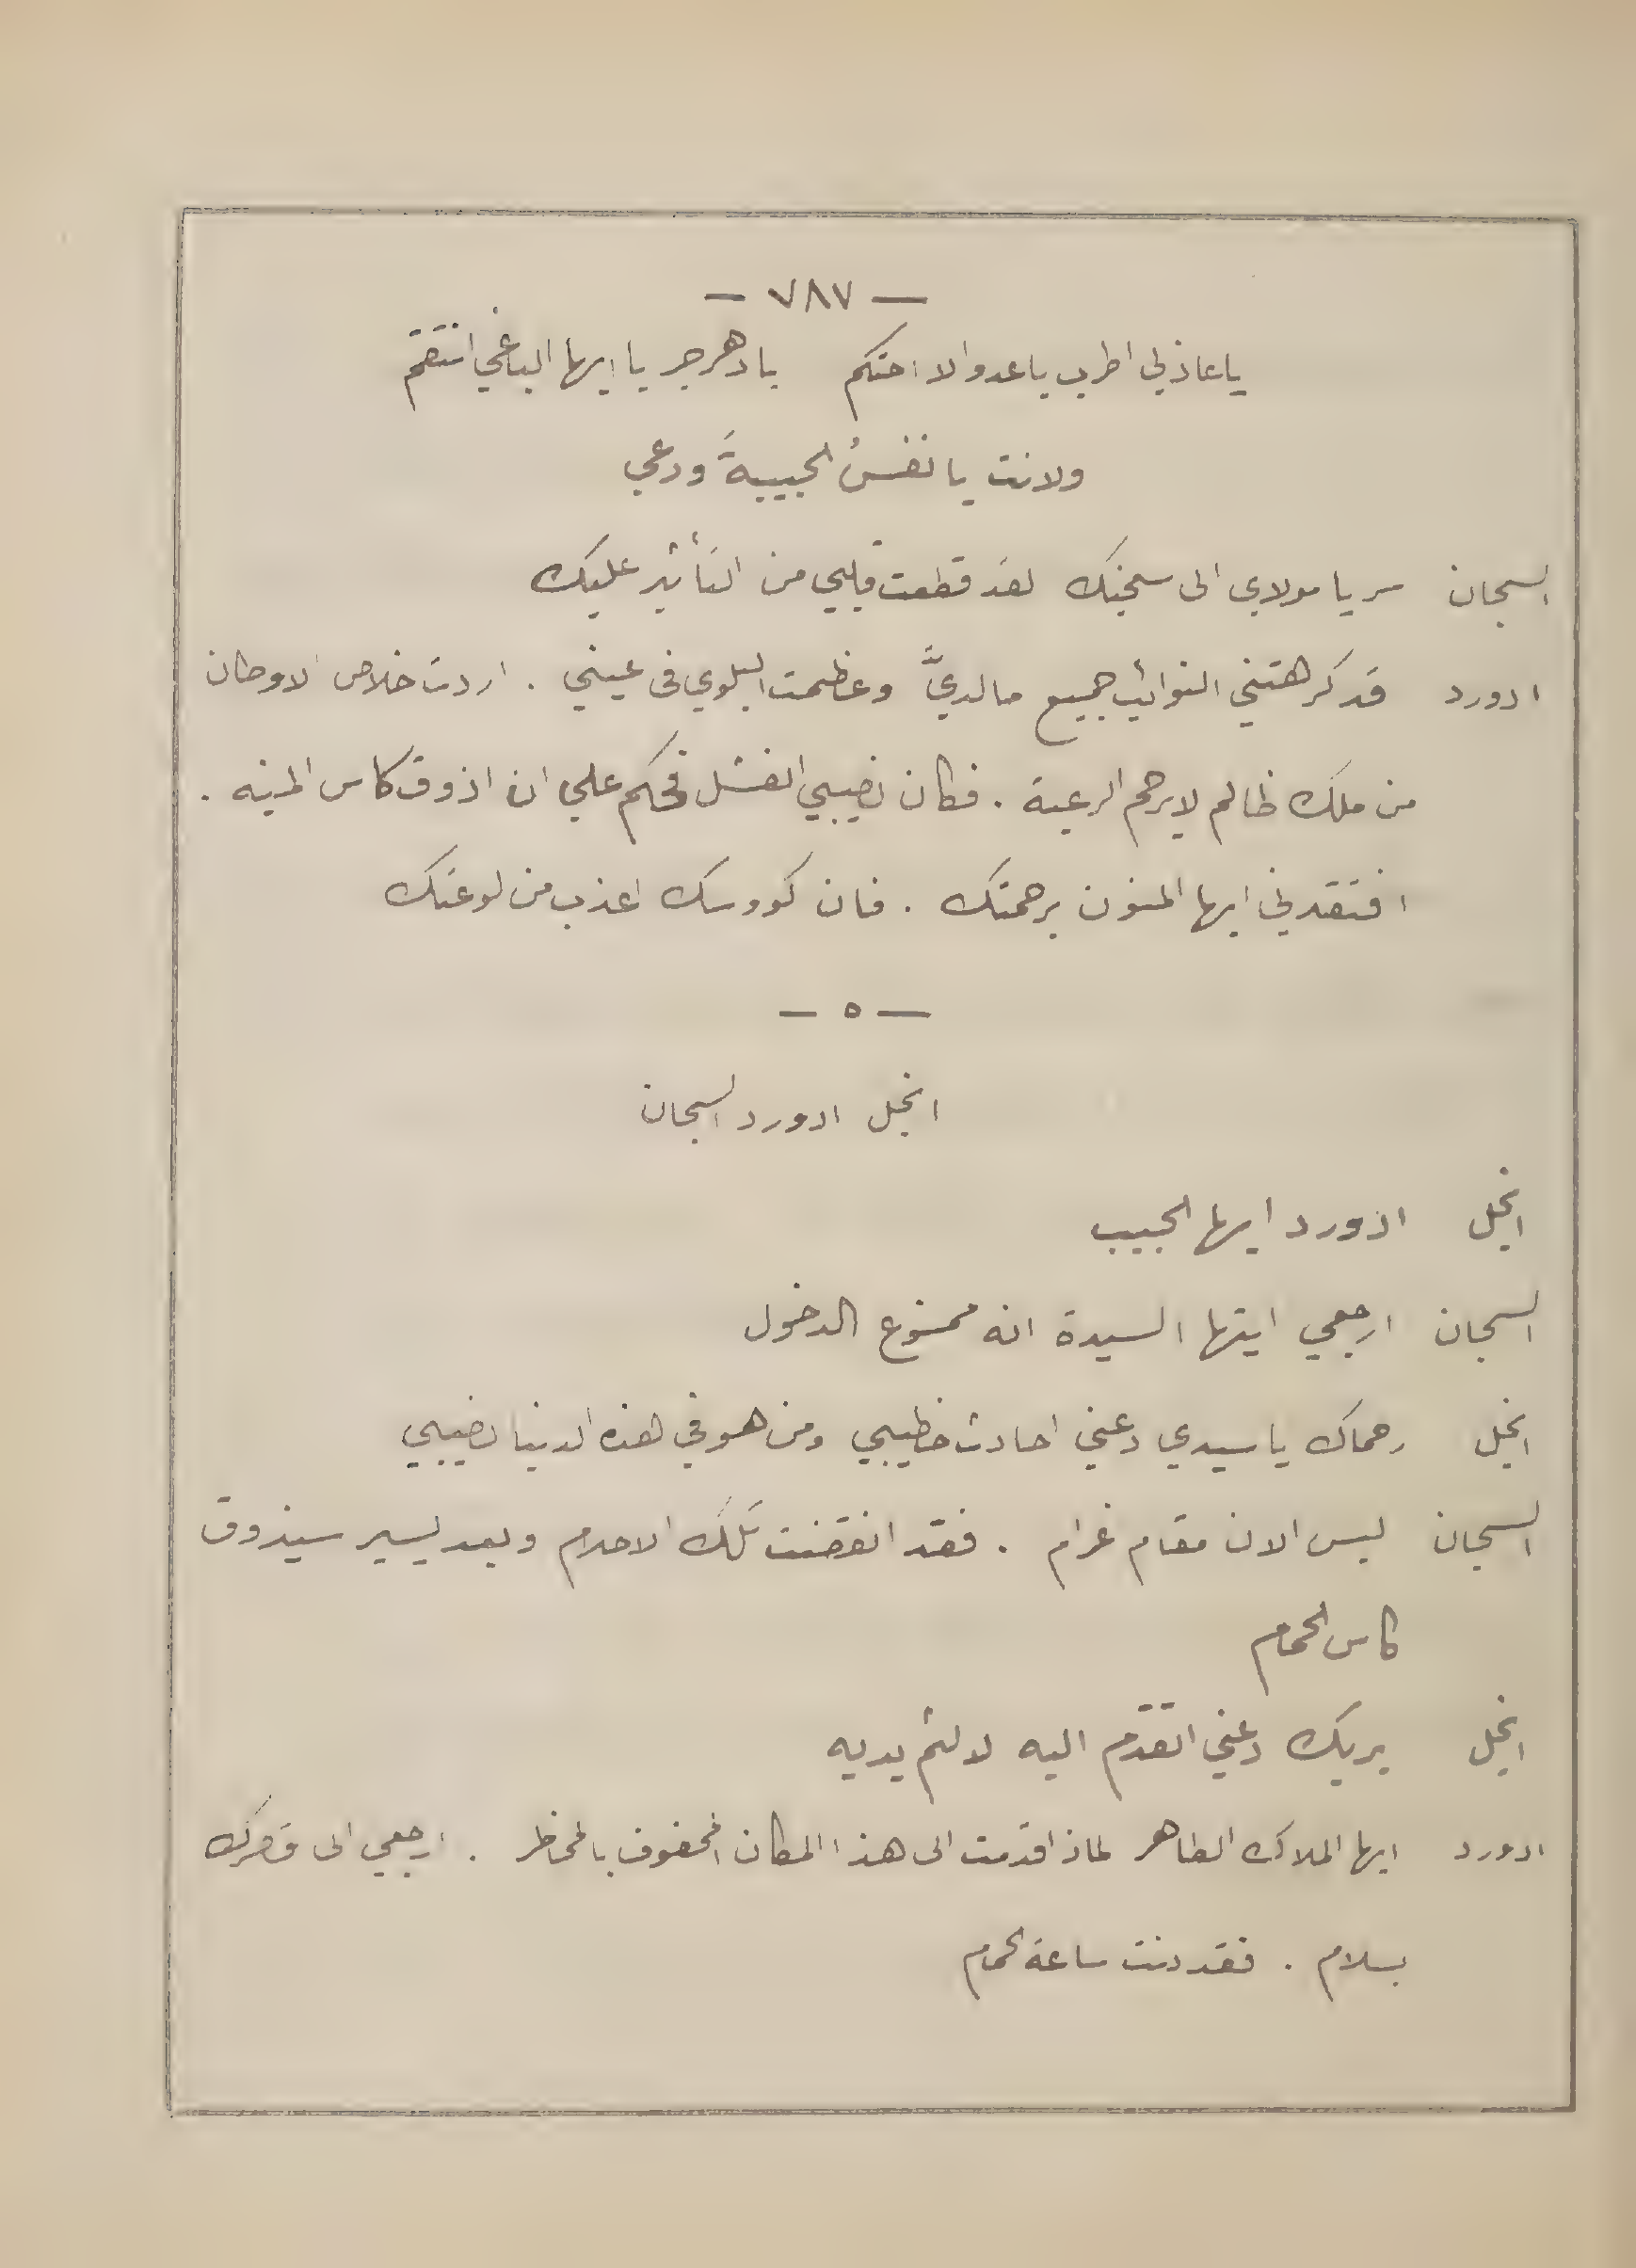 — ٧٨٧ —
ياعاذلي اطرب ياعدو الا احتكم يادهر جر يا ايها الباغي انتقم
ولانت يا نفسُ الحبيبةَ ودعي
السجان سر يا مولاي الى سجنك لقد قطعت قلبي من التأثير عليك
ادورد قد كرهتني النوائب جميع مالديَّ وعظمت البلوي في عيني . اردت خلاص الاوطان
من ملك ظالم لايرحم الرعية . فكان نصيبي الفشل فحكم علي ان اذوق كاس المنيه .
افتقدني ايها المنون برحمتك . فان كووسك اعذب من لوعتك
— ٥ —
انجل ادورد السجان
انجل ادورد ايها الحبيب
السجان ارجعي ايتها السيدة انه ممنوع الدخول
انجل رحماك ياسيدي دعني احادث خطيبي ومن هو في هذه الدنيا نصيبي
السجان ليس الان مقام غرام . فقد انقضت تلك الاحلام وبعد يسير سيذوق
كاس الحمام
انجل بربك دعني اتقدم اليه لالثم يديه
ادورد ايها الملاك الطاهر لماذا قدمت الى هذا المكان المحفوف بالمخاطر . ارجعي الى قصرك
بسلام . فقد دنت ساعة الحمام